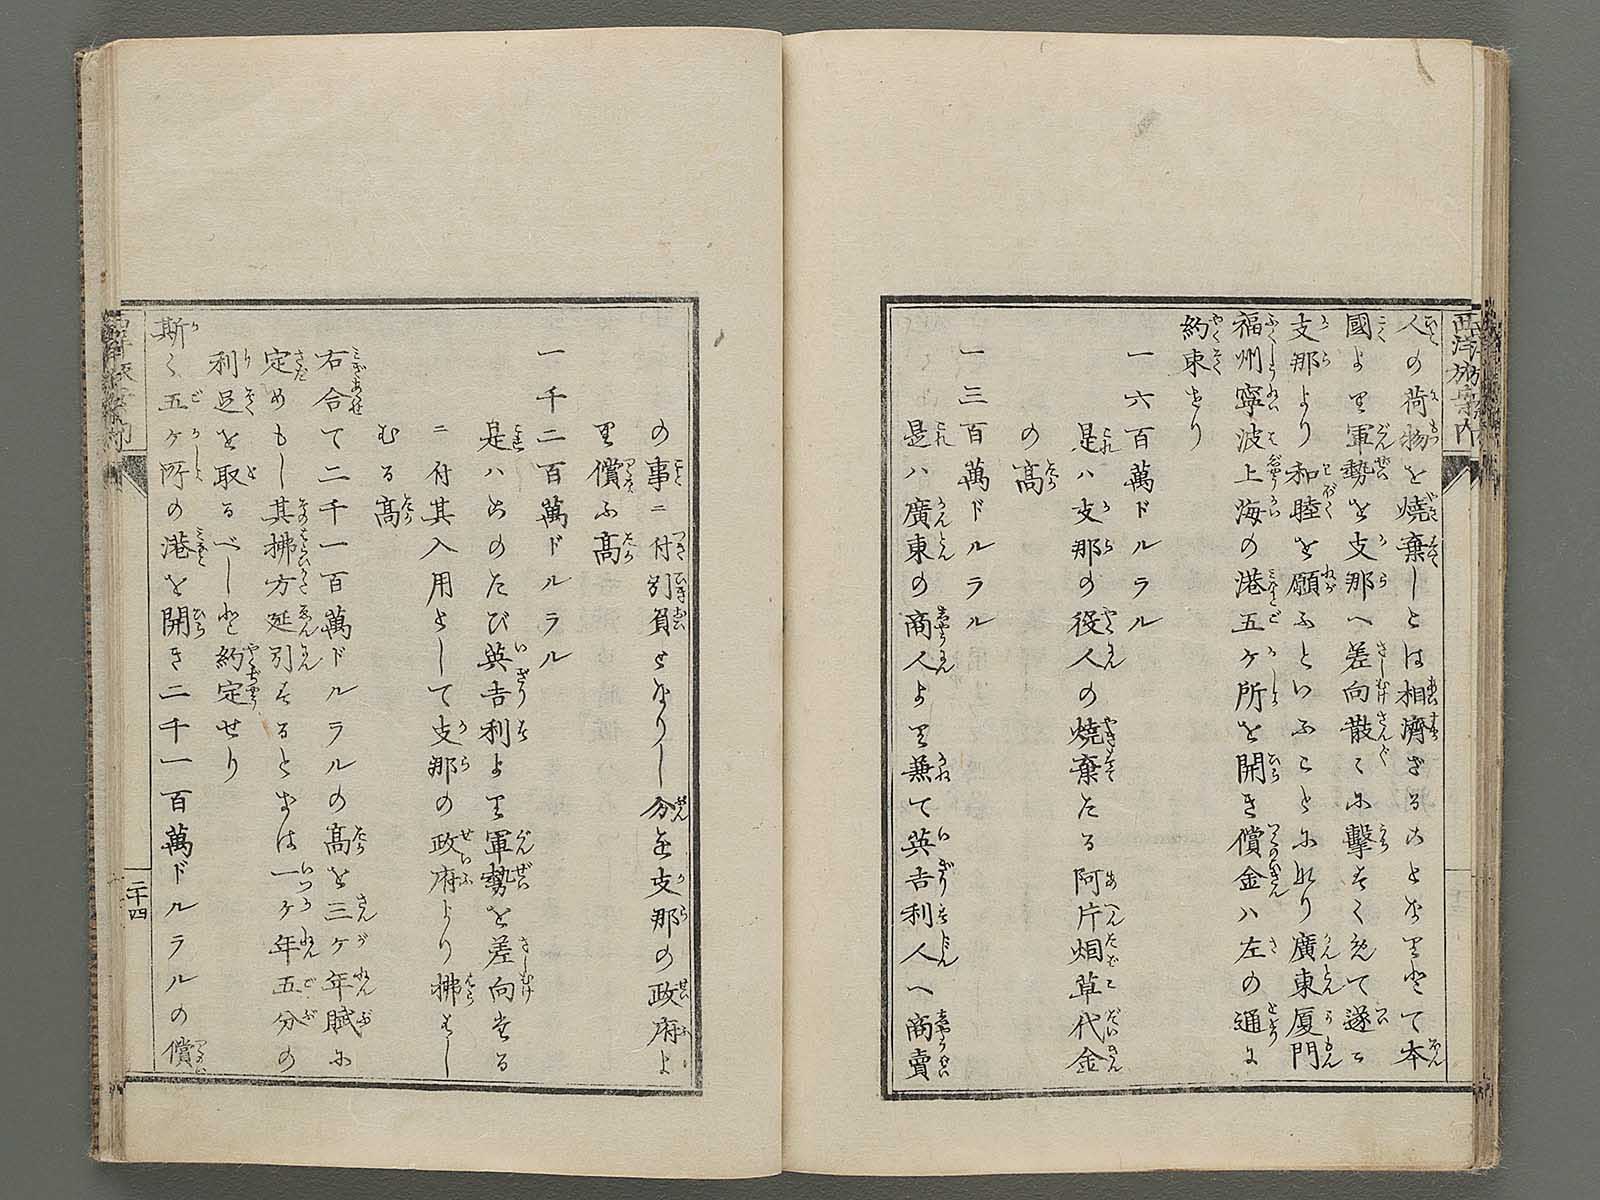 西洋旅案内
人の荷物を燒棄しとは相濟ざるのとなりとて本
國より軍勢を支那へ差向散々に擊てをはて遂に
支那より和睦を願ふといふことになり廣東厦門
福州寧波上海の港五ケ所を開き償金ハ左の通に
約束せり
一六百萬ドルラル
是ハ支那の役人の燒棄たる阿片烟草代金
の髙
一三百萬ドルラル
是ハ廣東の商人より兼て英吉利人へ商賣
の事ニ付引負となりし分を支那の政府よ
り償ふ髙
一千二百萬ドルラル
是ハ此のたび英吉利より軍勢を差向ける
ニ付其入用として支那の政府より拂はし
むる髙
右合て二千一百萬ドルラルの髙を三ケ年賦に
定めもし其拂方延引するときは一ケ年五分の
利足を取るべしと約定せり
斯く五ケ所の港を開き二千一百萬ドルラルの償
二十四